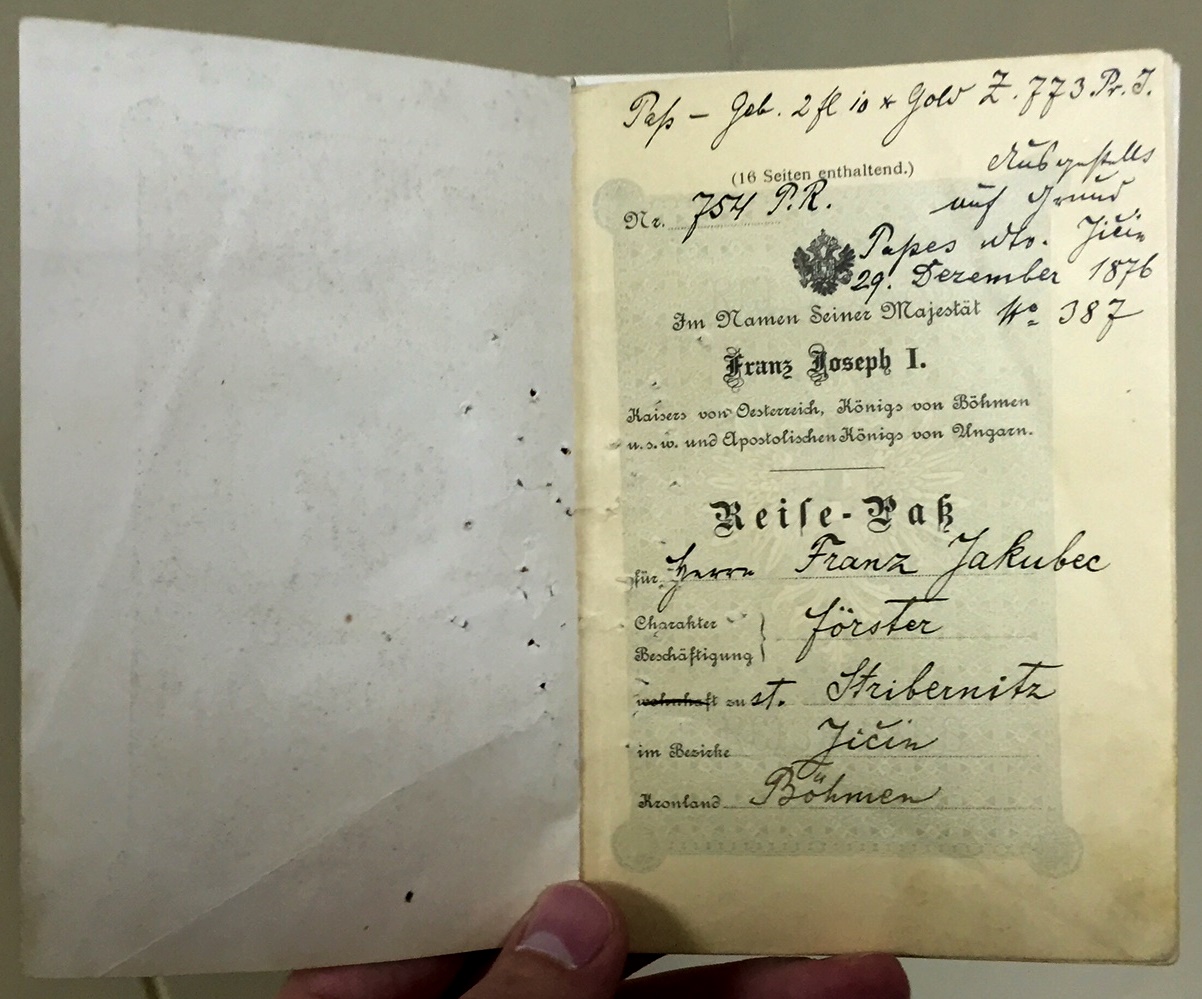 Paß – Geb. 2 fl 10 x Gold Z. 773 Pr. J.
(16 Seiten enthaltend.)
Ausgestellt
Nr. 754 P.R.
auf Grund
Paßes dto. Jičin
29. Dezember 1876
No 387
Im Namen Seiner Majestät
Franz Joseph I.
Kaisers von Oesterreich, Königs von Böhmen
u.s.w. und Apostolischen Königs von Ungarn.
Reiſe-Paß
für Herrn Franz Jakubec
Charakter
Beschäftigung } förster
wohnhaft zu st. Stribernitz
im Bezirke Jičin
Kronland Böhmen